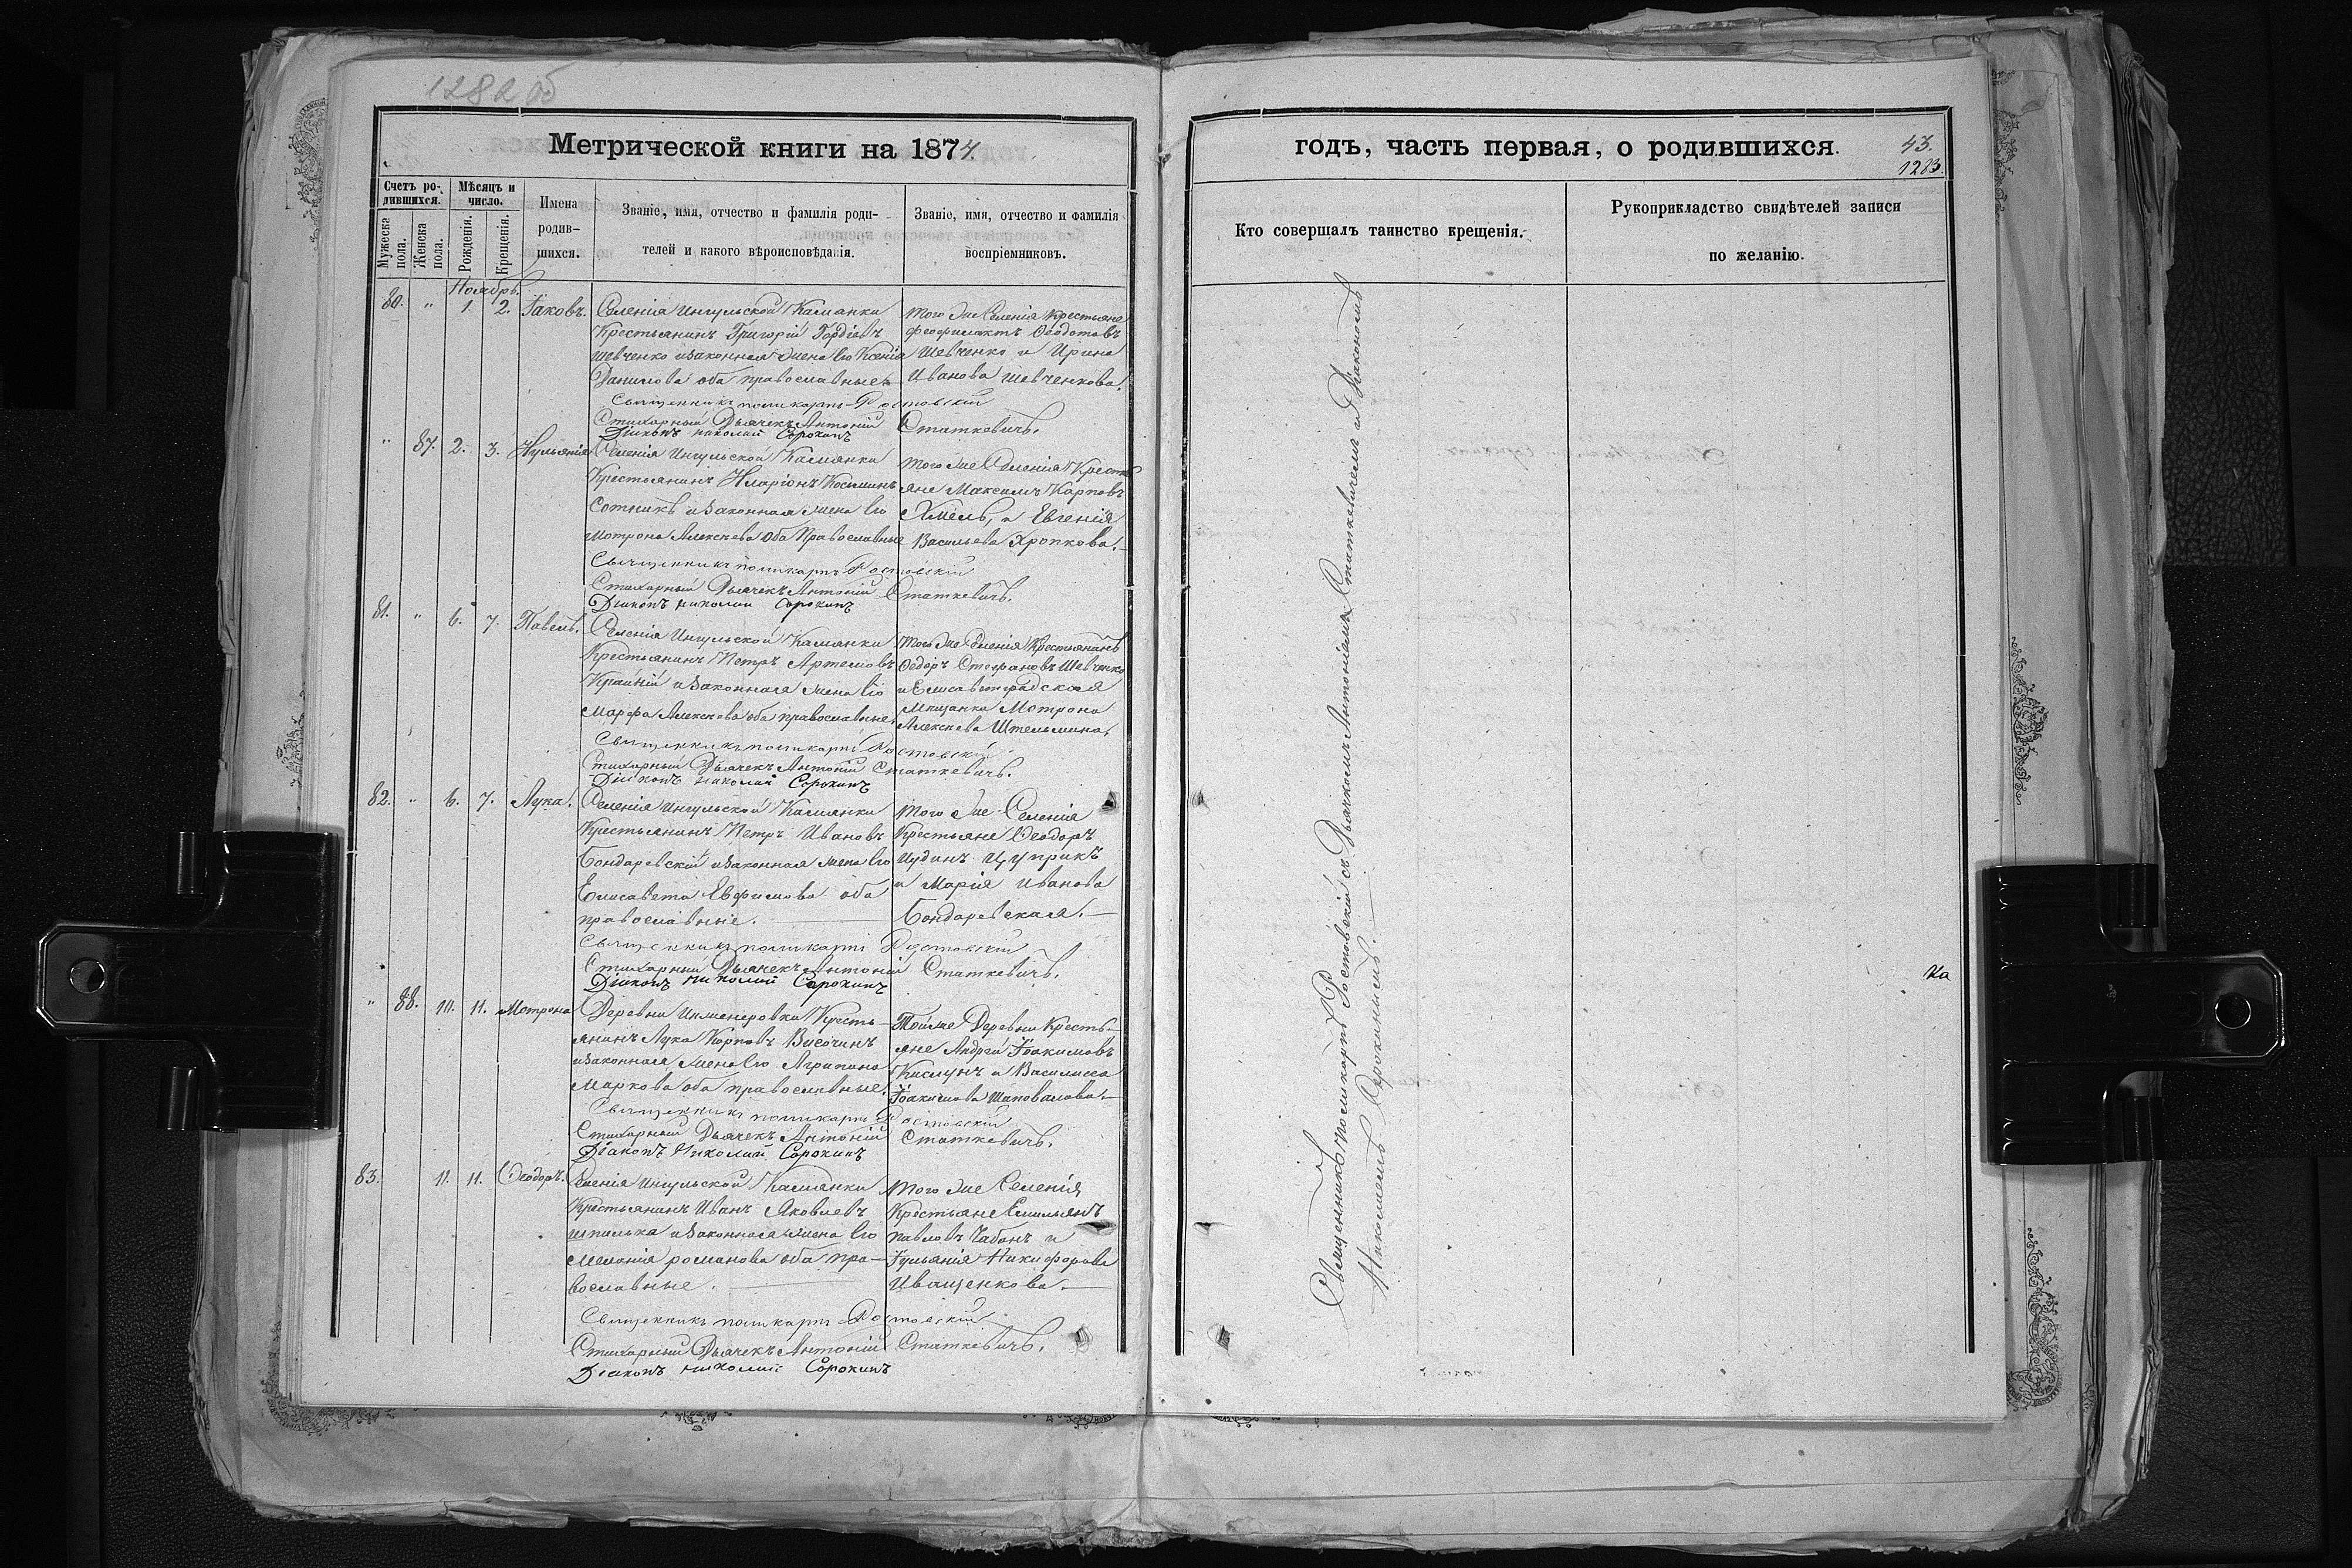 1282 об
Метрической книги на 1874.
Счетъ ро-
дившихся.
Мѣсяцъ и
число.
Мужеска
пола.
Женска
пола.
Рожденія.
Крещенія.
Имена
родив-
шихся.
Званіе, имя, отчество и фамилія роди-
телей и какого вѣроисповѣданія.
Званіе, имя, отчество и фамилія
воспріемниковъ.
Ноябрь.
80. „ 1. 2. Іаковъ.
Селенія Ингульской Каманки
Крестьянинъ Григорій Гордіевъ
Шевченко и законная жена его Ксенія
Данилова оба православные.
Того же Селенія Крестьяне
Феофилактъ Ѳеодотовъ
Шевченко и Ирина
Иванова Шевченкова.
Священникъ Поликарпъ Ростовскій
Стихарный Дьячекъ Антоній Статкевичъ.
Діаконъ Николай Сорокинъ
„ 87. 2. 3. Иульянія
Селенія Ингульской Каманки
Крестьянинъ Иларіонъ Косминъ
Сотникъ и законная жена его
Мотрона Алексѣева оба Православные
Того же Селенія Кресть
яне Максимъ Карповъ
Хмель, и Евгенія
Васильева Хропкова.
Священникъ Поликарпъ Ростовскій
Стихарный Дьячекъ Антоній Статкевичъ.
Діаконъ Николай Сорокинъ
81. „ 6. 7. Павелъ.
Селенія Ингульской Каманки
Крестьянинъ Петръ Артемовъ
Крайній и законная жена его
Марфа Алексѣева оба православные.
Того же Селенія Крестьянинъ
Ѳедоръ Стефановъ Шевченко
и Елисаветградская
Мещанка Мотрона
Алексѣева Штельмина.
Священникъ Поликарпъ Ростовскій
Стихарный Дьячекъ Антоній Статкевичъ.
Діаконъ Николай Сорокинъ
82. „ 6. 7. Лука.
Селенія Ингульской Каманки
Крестьянинъ Петръ Ивановъ
Бондаревскій и законная жена его
Елисавета Евфимова оба
православные.
Того же Селенія
Крестьяне Ѳеодоръ
Иудинъ Цуприкъ
и Марія Иванова
Бондаревская.
Священникъ Поликарпъ Ростовскій
Стихарный Дьячекъ Антоній Статкевичъ.
Діаконъ Николай Сорокинъ
„ 88. 10. 11. Мотрона
Деревни Инженеровки Кресть-
янинъ Лука Карповъ Височинъ
и законная жена его Агрипина
Маркова оба православные.
Той же Деревни Кресть-
яне Андрей Іоакимовъ
Кислунъ и Василисса
Іоакимова Шаповалова.
Священникъ Поликарпъ Ростовскій
Стихарный Дьячекъ Антоній Статкевичъ.
Діаконъ Николай Сорокинъ
83. 11. 11. Ѳеодоръ.
Селенія Ингульской Каманки
Крестьянинъ Иванъ Яковлевъ
Шпилька и законная жена его
Меланія Романова оба пра-
вославные.
Того же Селенія
Крестьяне Емильянъ
Павловъ Чабанъ и
Іульянія Никифорова
Иващенкова.
Священникъ Поликарпъ Ростовскій
Стихарный Дьячекъ Антоній Статкевичъ.
Діаконъ Николай Сорокинъ
годъ, часть первая, о родившихся.
43.
1283.
Кто совершалъ таинство крещенія.
Рукоприкладство свидѣтелей записи
по желанію.
Священникъ Поликарпъ Ростовскій съ Дьячкомъ Антоніемъ Статкевичемъ и Діакономъ
Николаемъ Сорокинымъ.